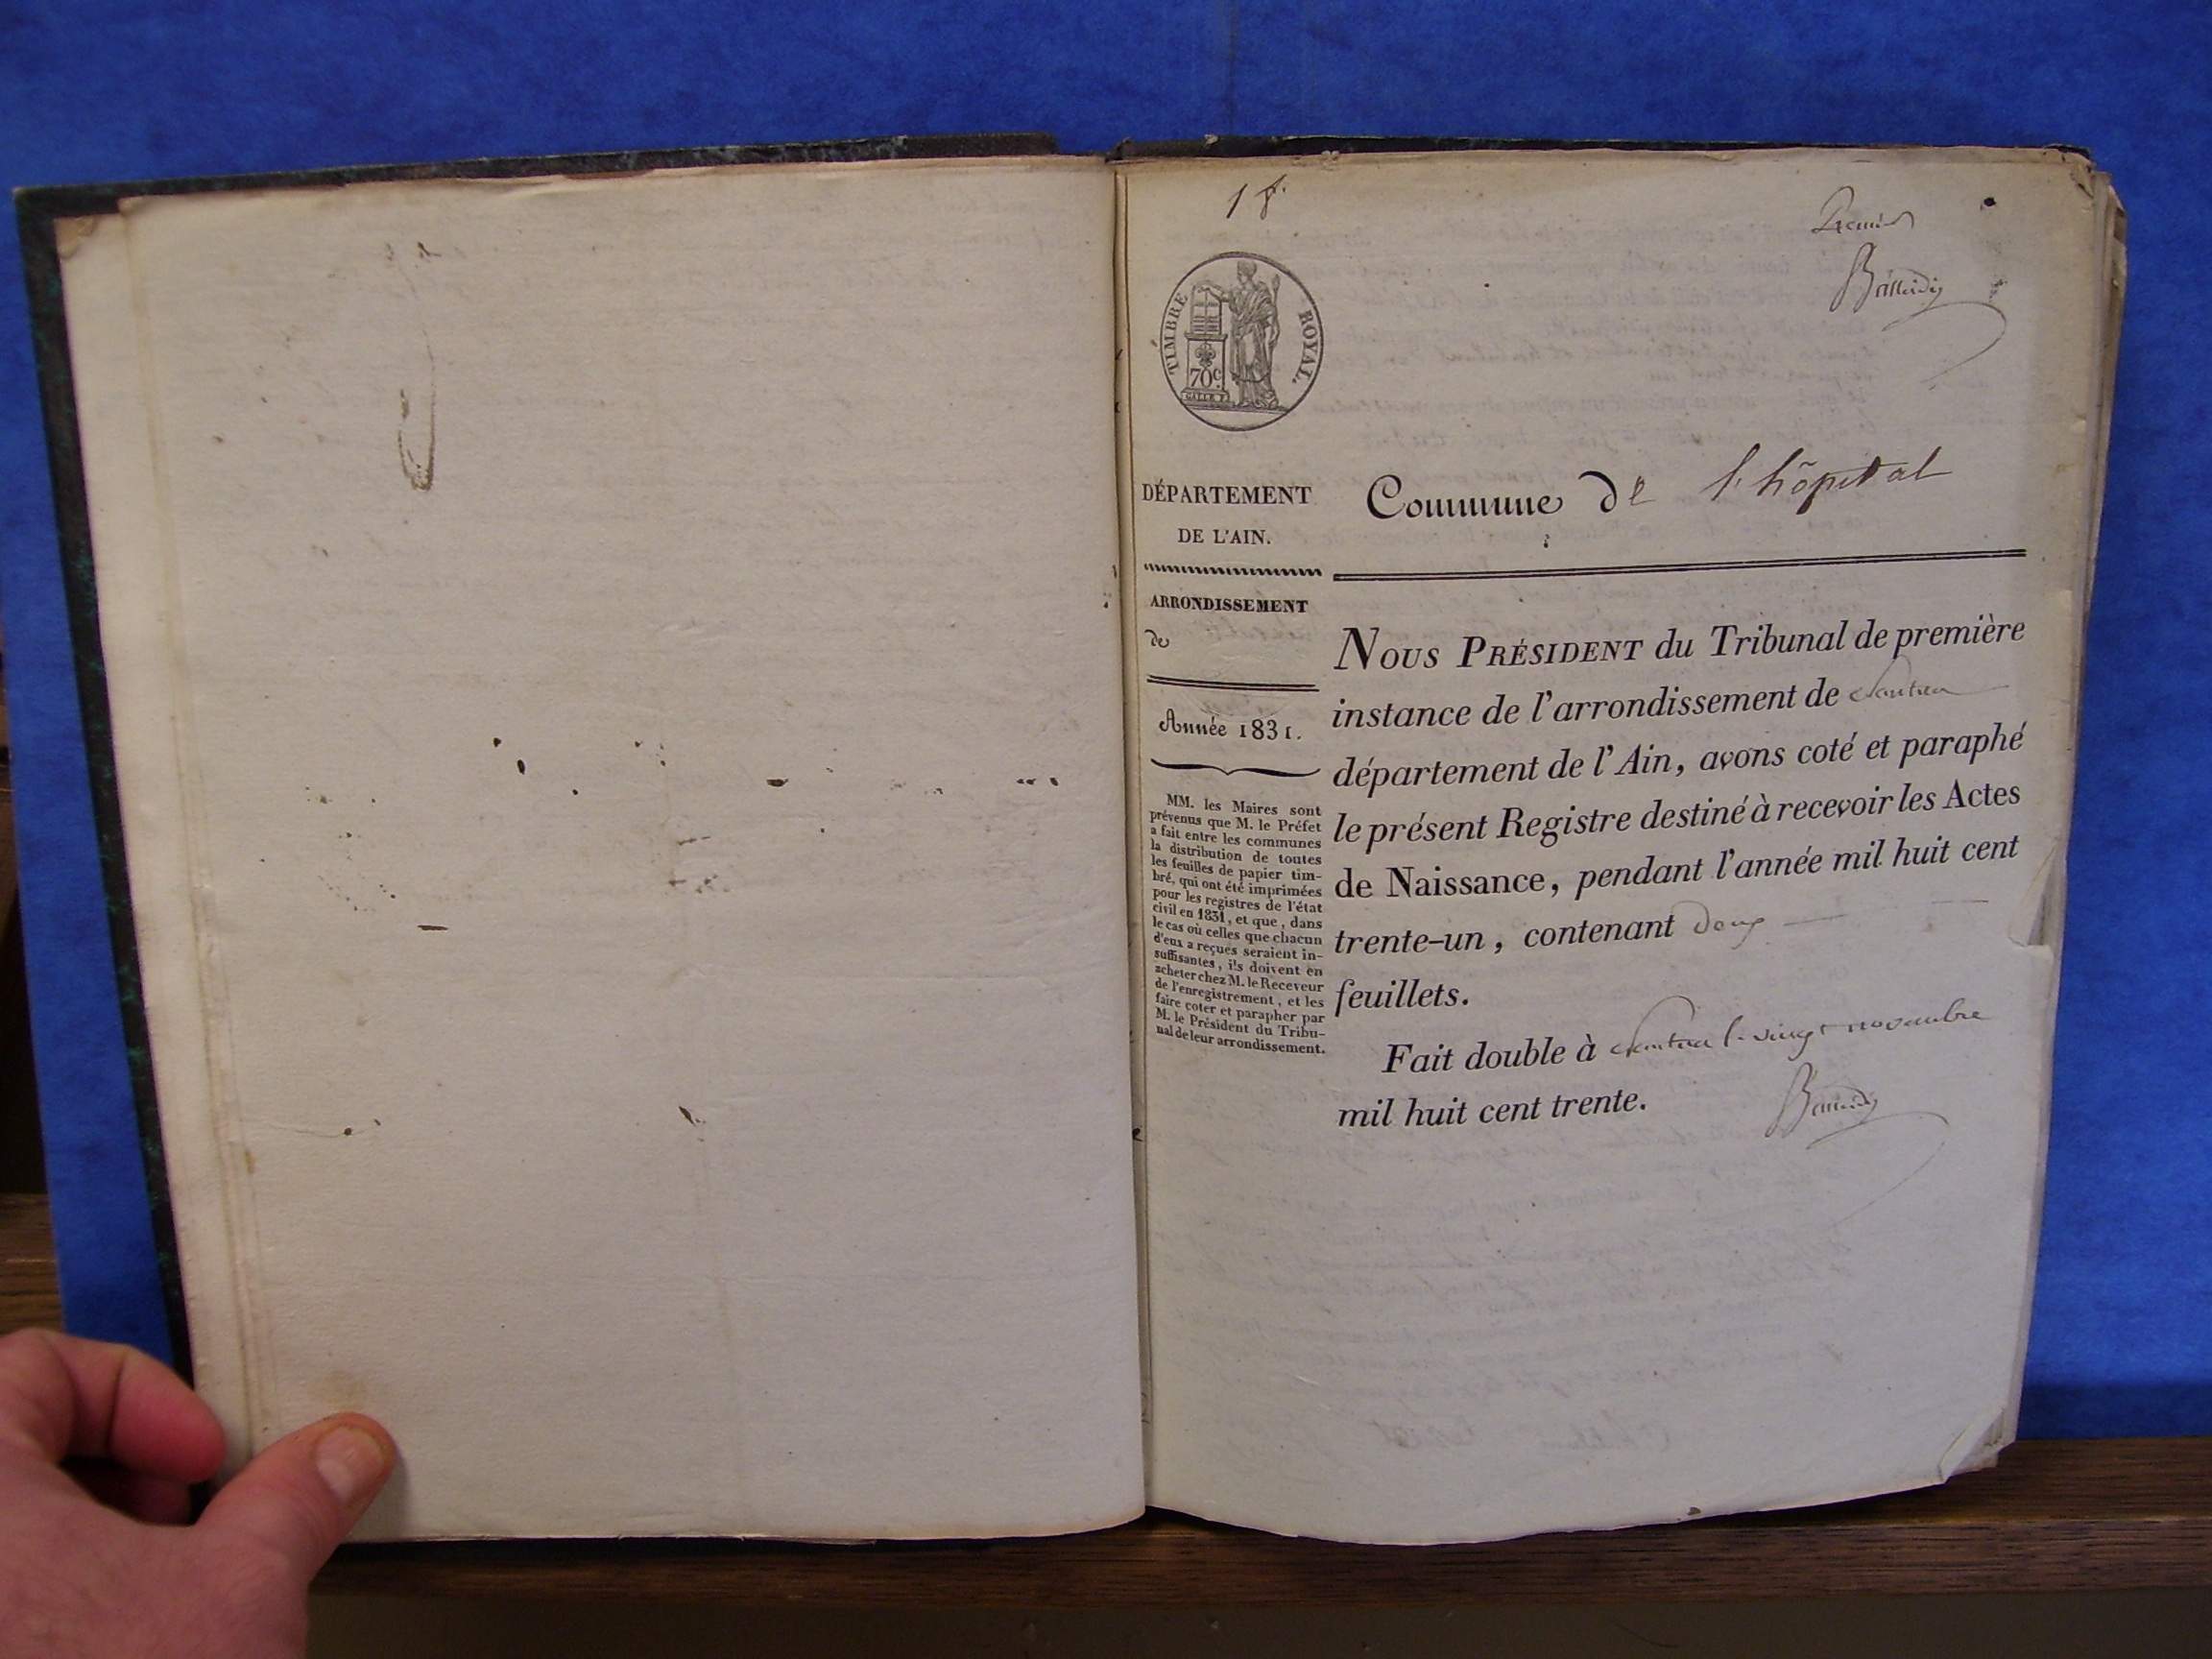 1 f.
Premier
TIMBRE ROYAL.
70 c.
DÉPARTEMENT
DE L'AIN.
Commune de l'hôpital
ARRONDISSEMENT
de
Année 1831.
MM. les Maires sont
prévenus que M. le Préfet
a fait entre les communes
la distribution de toutes
les feuilles de papier tim-
bré, qui ont été imprimées
pour les registres de l'état
civil en 1831, et que, dans
le cas où celles que chacun
d'eux a reçues seraient in-
suffisantes, ils doivent en
acheter chez M. le Receveur
de l'enregistrement, et les
faire coter et parapher par
M. le Président du Tribu-
nal de leur arrondissement.
NOUS PRÉSIDENT du Tribunal de première
instance de l'arrondissement de Nantua
département de l'Ain, avons coté et paraphé
le présent Registre destiné à recevoir les Actes
de Naissance, pendant l'année mil huit cent
trente-un, contenant
feuillets.
Fait double à Nantua le vingt novembre
mil huit cent trente.